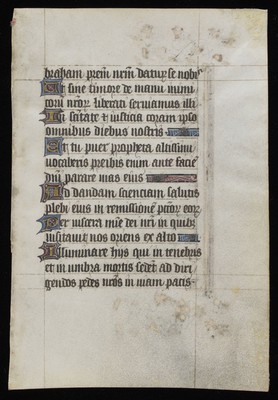 braham prem nrm daturu se nobis
Et sine timore de manu inimi
corū nrōr liberati seruiamus illi
In sc̄itate & iusticia coram ipso
omnibus diebus nostris
Et tu puer propheta altissimi
vocaberis preibis enim ante facie
dn̄i parare vias eius
Ad dandam scienciam salutis
plebi eius in remissione pctōr eor
Per viscera mīe dei nr̄i in quib
visitauit nos oriens ex alto
Illuminare hijs qui in tenebris
et in vmbra mortis sedet ad diri
gendos pedes nr̄os in viam pacis